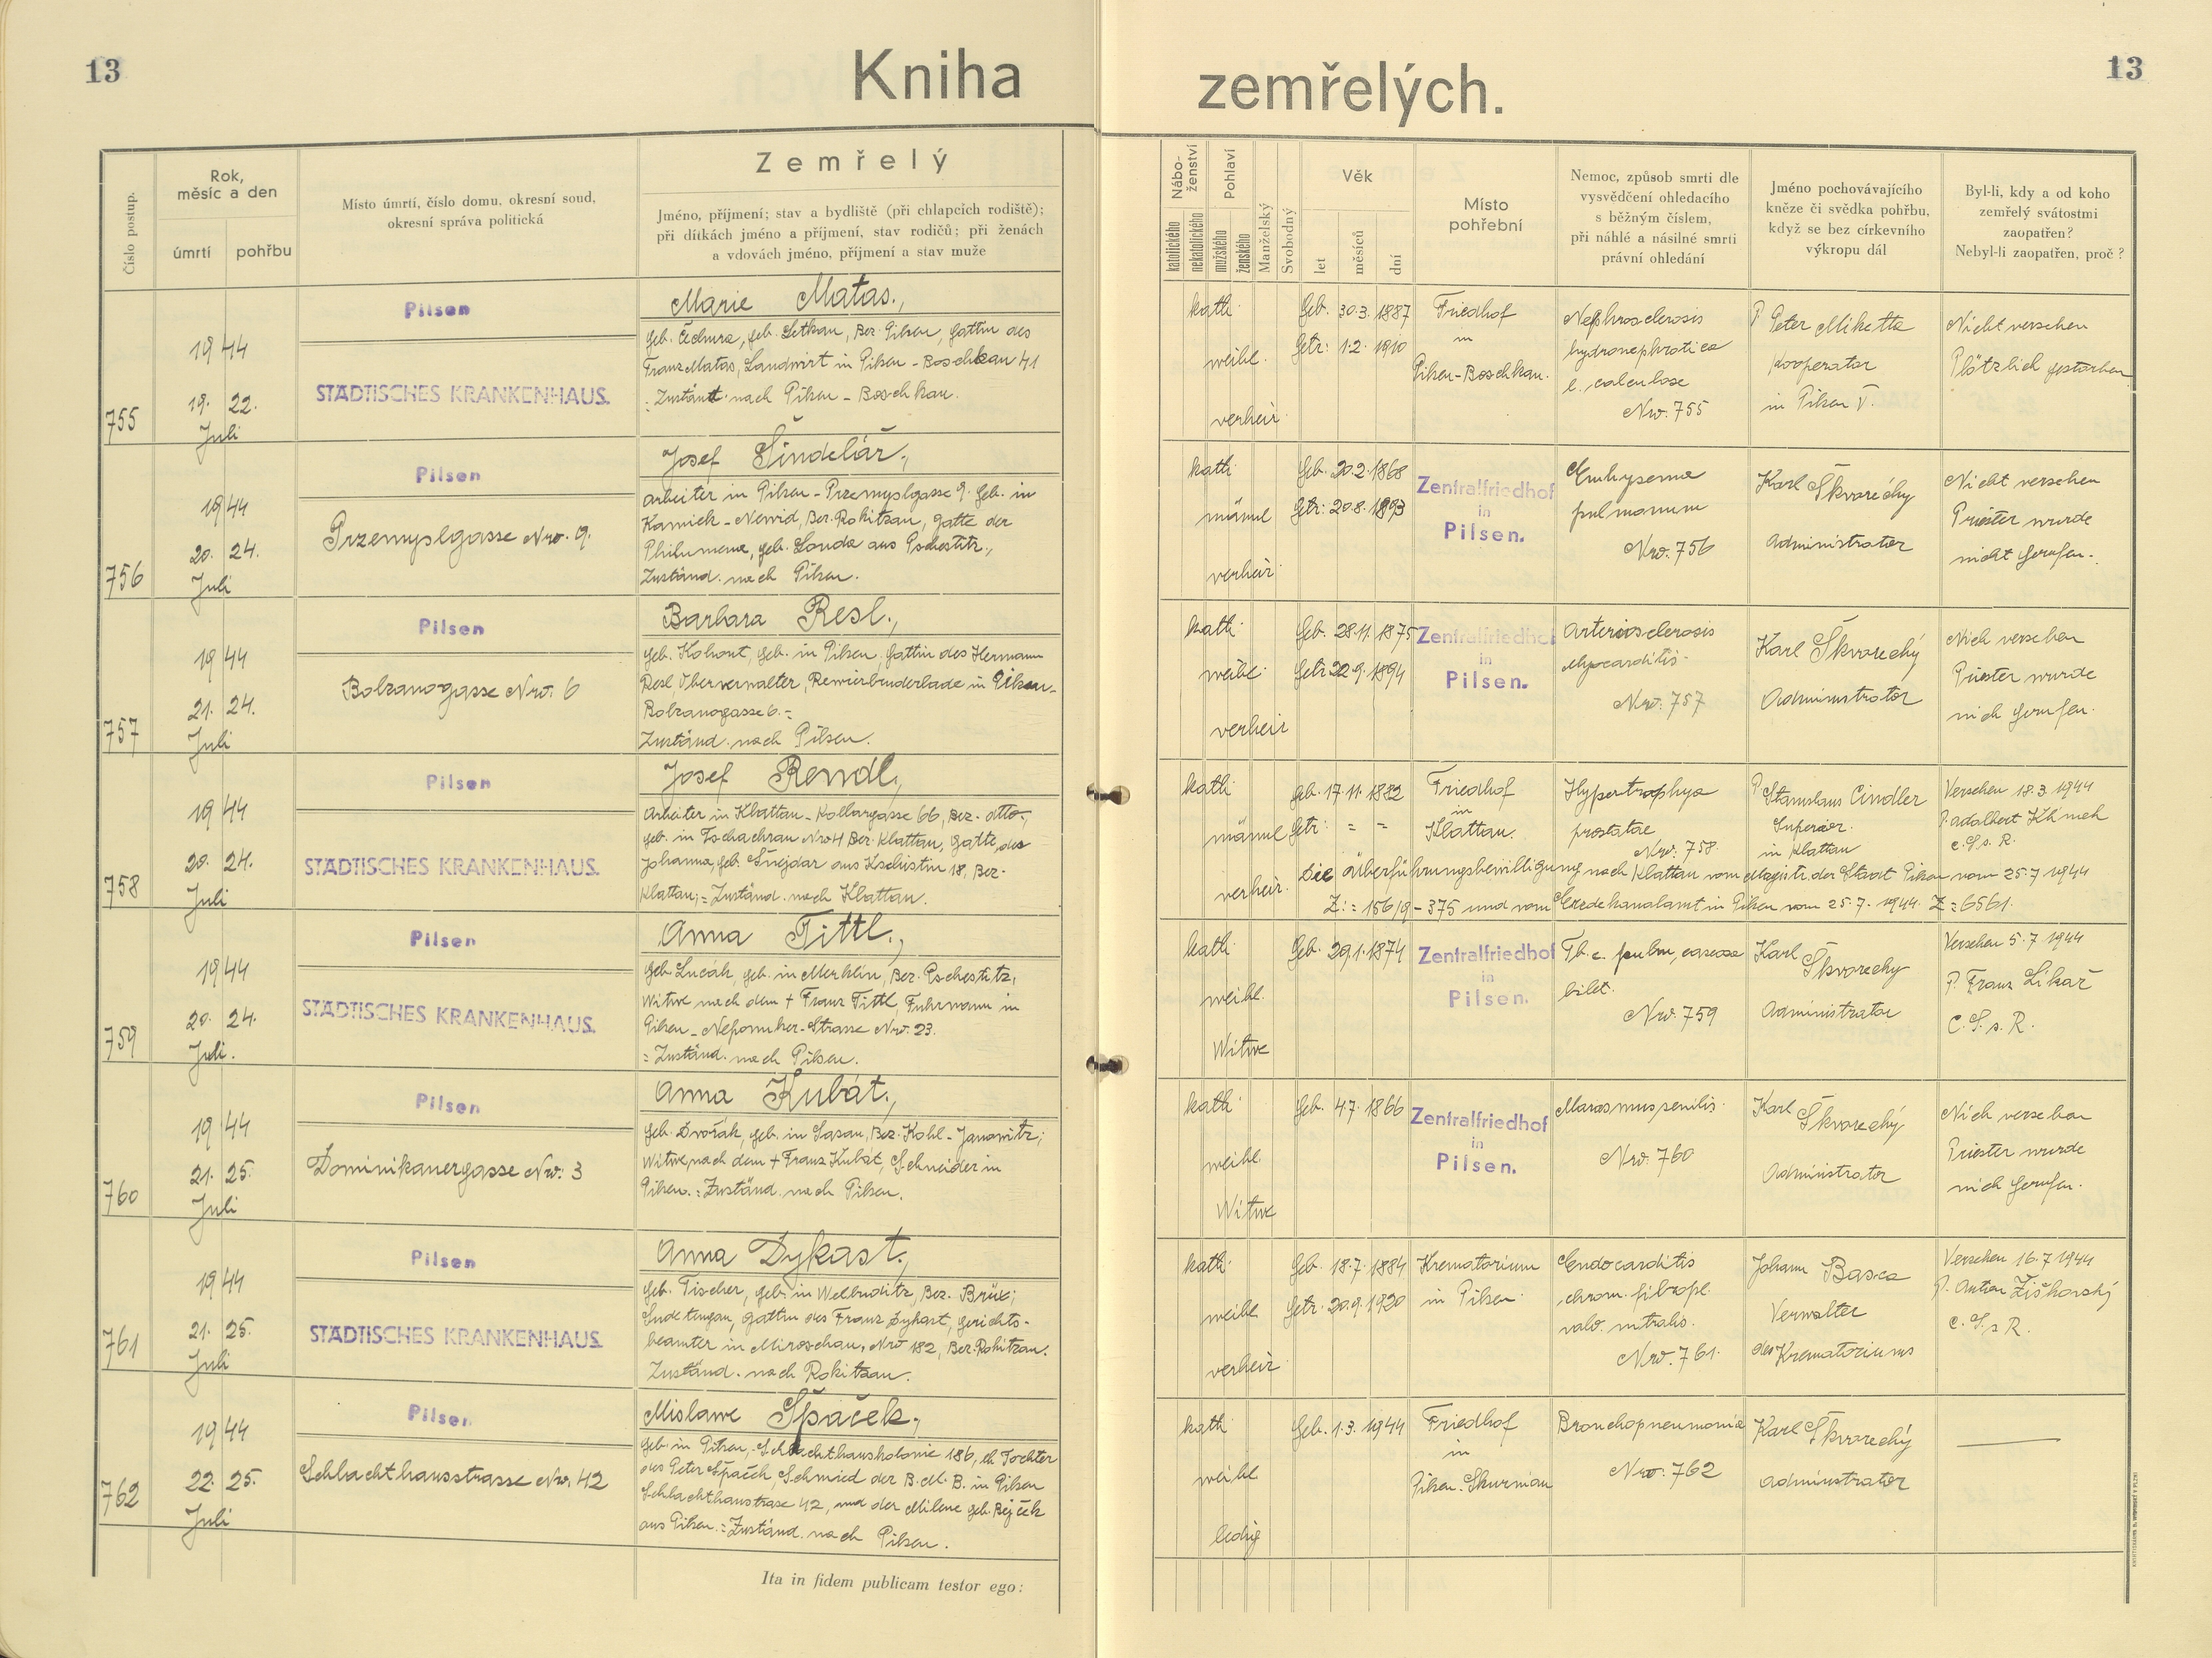 13
Kniha
zemřelých.
13
Číslo postup.
Rok,
měsíc a den
úmrtí
pohřbu
Místo úmrtí, číslo domu, okresní soud,
okresní správa politická
Zemřelý
Jméno, příjmení; stav a bydliště (při chlapcích rodiště);
při dítkách jméno a příjmení, stav rodičů; při ženách
a vdovách jméno, příjmení a stav muže
Nábo-
ženství
katolického
nekatolického
Pohlaví
mužského
ženského
Manželský
Svobodný
Věk
let
měsíců
dní
Místo
pohřební
Nemoc, způsob smrti dle
vysvědčení ohledacího
s běžným číslem,
při náhlé a násilné smrti
právní ohledání
Jméno pochovávajícího
kněze či svědka pohřbu,
když se bez církevního
výkropu dál
Byl-li, kdy a od koho
zemřelý svátostmi
zaopatřen?
Nebyl-li zaopatřen, proč?
755
1944
19. 22.
Juli
Pilsen
STÄDTISCHES KRANKENHAUS.
Marie Matas.,
geb. Čechura, geb. Letkau, Bez. Pilsen, Gattin des
Franz Matas, Landwirt in Pilsen - Boschkau 41
: Zuständ. nach Pilsen - Boschkau.
kath.
weibl.
verheir.
Geb. 30.3. 1887
Getr: 1.2. 1910
Friedhof
in
Pilsen-Boschkau.
Nephrosclerosis
hydronephrotica
e. calculose
Nro. 755
P Peter Miketta
Kooperator
in Pilsen V.
Nicht versehen
Plötzlich gestorben
756
1944
20. 24.
Juli
Pilsen
Przemyslgasse Nro. 9.
Josef Šindelář.,
Arbeiter in Pilsen - Przemyslgasse 9. Geb. in
Kamiek - Newid, Bez. Rokitzan, Gatte der
Philumena, geb. Louda aus Pschestitz.,
Zuständ. nach Pilsen.
kath.
männl
verheir.
Geb. 20.2. 1868
Getr: 20.8. 1893
Zentralfriedhof
in
Pilsen.
Emhysema
pulmonum
Nro. 756
Karl Škvorečhy
Administrator
Nicht versehen
Priester wurde
nicht gerufen.
757
1944
21. 24.
Juli
Pilsen
Bolzanogasse Nro. 6
Barbara Resl.,
geb. Kohout, geb. in Pilsen, Gattin des Hermann
Resl, Oberverwalter, Revierbruderlade in Pilsen-
Bolzanogasse 6. =
Zuständ. nach Pilsen.
kath.
weibl.
verheir
Geb. 28.11. 1875
Getr. 22.9. 1894
Zentralfriedhof
in
Pilsen.
Arteriosclerosis
Myocarditis.
Nro: 757
Karl Škvorečhý
Administrator
Nich versehen
Priester wurde
nich gerufen.
758
1944
20. 24.
Juli
Pilsen
STÄDTISCHES KRANKENHAUS.
Josef Rendl,
Arbeiter in Klattau - Kollargasse 66, Bez. - otto.,
geb. in Tschachrau Nro 4 Bez. Klattau, Gatte des
Johanna, geb. Šnejdar aus Kschistin 18, Bez.
Klattau; = Zuständ. nach Klattau.
kath.
männl
verheir.
geb. 17.11. 1882
Getr: = =
Friedhof
in
Klattau.
Hypertrophya
prostatae
Nro: 758.
P Stanislaus Cindler
Superior.
in Klattau
Versehen 18.3 1944
P. Adalbert Khmeh
C. S. s. R.
Die Überführungsbewilligung nach Klattau vom Magistr. der Stadt Pilsen vom 25.7 1944
Z: = 156/9 - 375 und vom Erzdekanalamt in Pilsen vom 25.7. 1944. Z = 6561.
759
1944
20. 24.
Juli.
Pilsen
STÄDTISCHES KRANKENHAUS.
Anna Tittl.,
geb. Lucák, geb. in Merklin, Bez. Pschestitz,
Witwe nach dem + Franz Tittl, Fuhrmann in
Pilsen - Nepomuker-Strasse Nro. 23.
= Zuständ. nach Pilsen.
kath.
weibl.
Witwe
Geb. 29.1. 1874
Zentralfriedhof
in
Pilsen.
Tb.c. pulm, caseosa
bilat.
Nro. 759
Karl Škvorečhy
Administrator
Versehen 5.7 1944
P. Franz Likař
C. S. s. R.
760
1944
21. 25.
Juli
Pilsen
Dominikanergasse Nro: 3
Anna Kubát.,
geb. Dvořák, geb. in Sasau, Bez. Kohl-Janowitz;
Witwe, nach dem + Franz Kubát, Schneider in
Pilsen. : Zuständ. nach Pilsen.
kath.
weibl.
Witwe
Geb. 4.7. 1866
Zentralfriedhof
in
Pilsen.
Marasmus senilis.
Nro. 760
Karl Škvorečhý
Administrator
Nich versehen
Priester wurde
nich gerufen.
761
1944
21. 25.
Juli
Pilsen
STÄDTISCHES KRANKENHAUS.
Anna Dykast.,
geb. Tischer, geb. in Welbuditz, Bez. Brüx;
Sudetengau, Gattin des Franz Dykast, Gerichts-
beamter in Miroschau, Nro 182, Bez. Rokitzan.
Zuständ. nach Rokitzan.
kath.
weibl
verheir.
Geb. 18.7. 1884
Getr. 20.9. 1920
Krematorium
in Pilsen.
Endocarditis
chron. fibropl.
valv. mitralis.
Nro. 761.
Johann Basca
Verwalter
des Krematoriums
Versehen 16.7 1944
P. Anton Žiškovský
C. S. s R.
762
1944
22. 25.
Juli
Pilsen
Schlachthausstrasse Nro. 42
Mislawe Špaček.,
geb. in Pilsen, - Schlachthauskolonie 186, eh Tochter
des Peter Špaček, Schmied der B. M. B. in Pilsen
Schlachthaustrase 42, und der Milene geb. Rejček
aus Pilsen. : Zuständ. nach Pilsen.
kath.
weibl
ledig
Geb. 1.3. 1944
Friedhof
in
Pilsen. Skurnian
Bronchopneumonia
Nro: 762
Karl Škvorečhý
Administrator
Ita in fidem publicam testor ego: